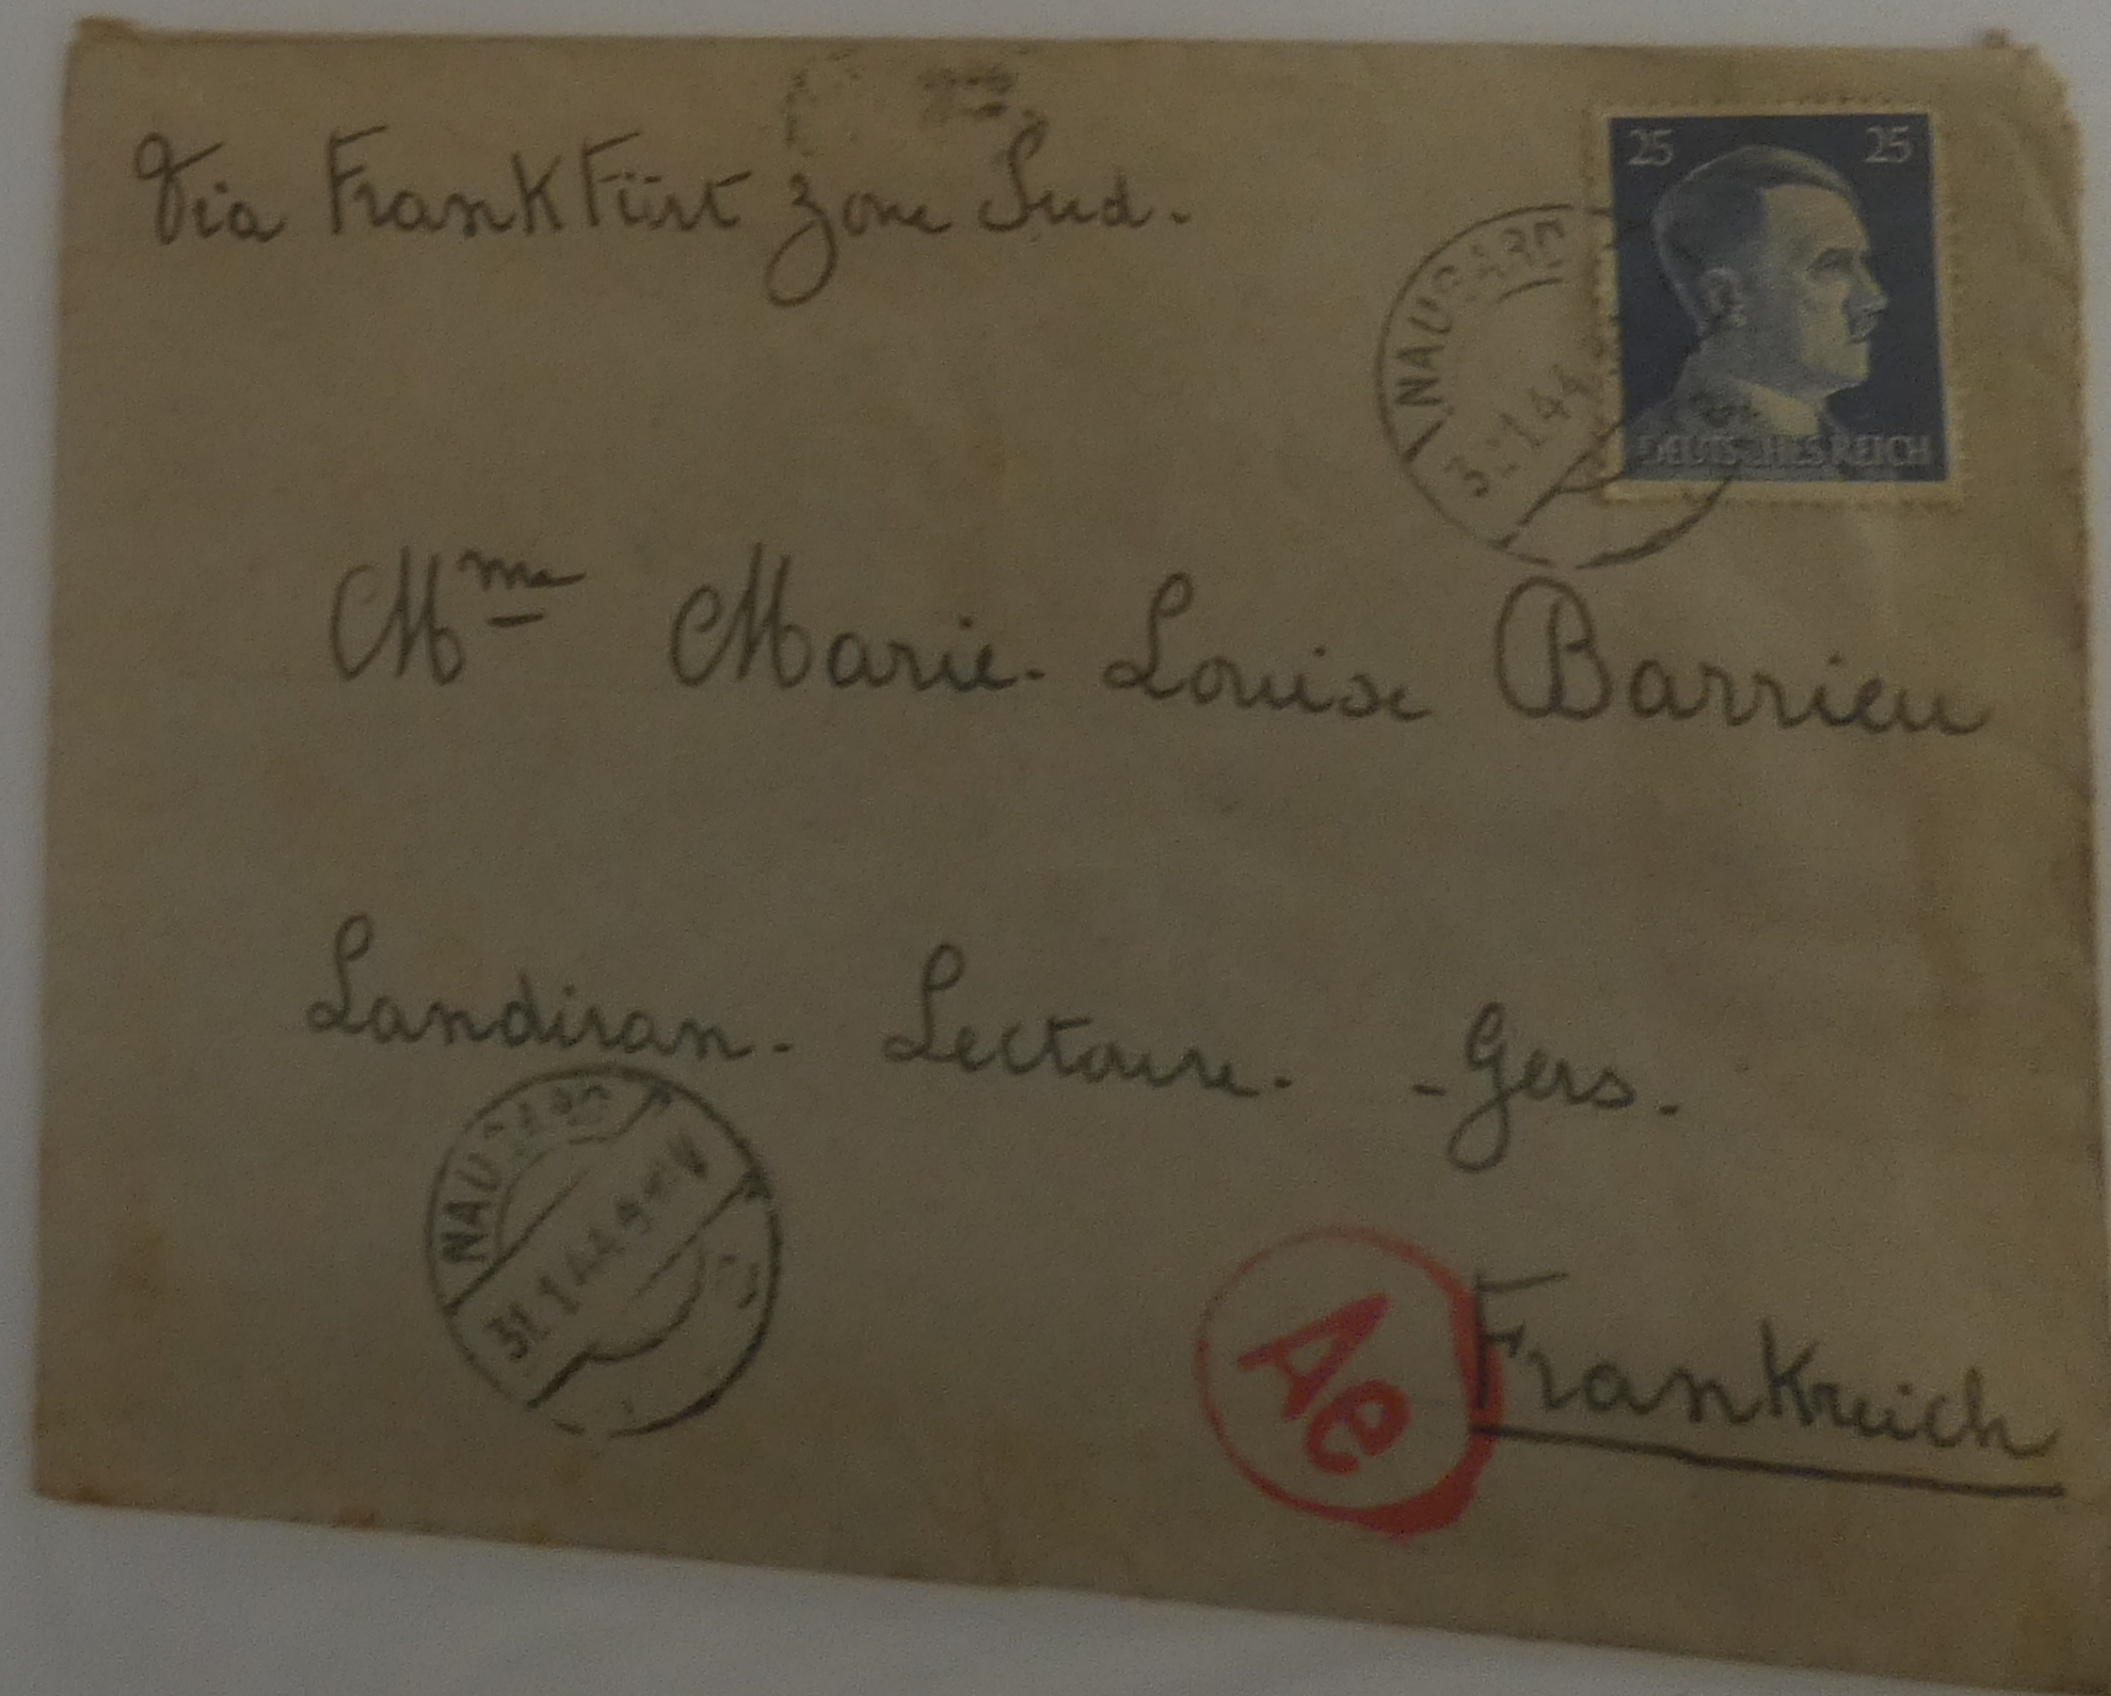 Via FrankFürt zone Sud.
25 25
DEUTSCHES REICH
NAUGARD
31.1.44
Mme Marie-Louise Barrieu
Landiran. Lectoure. - Gers.
NAUGARD
31.1.44
Ae
Frankreich